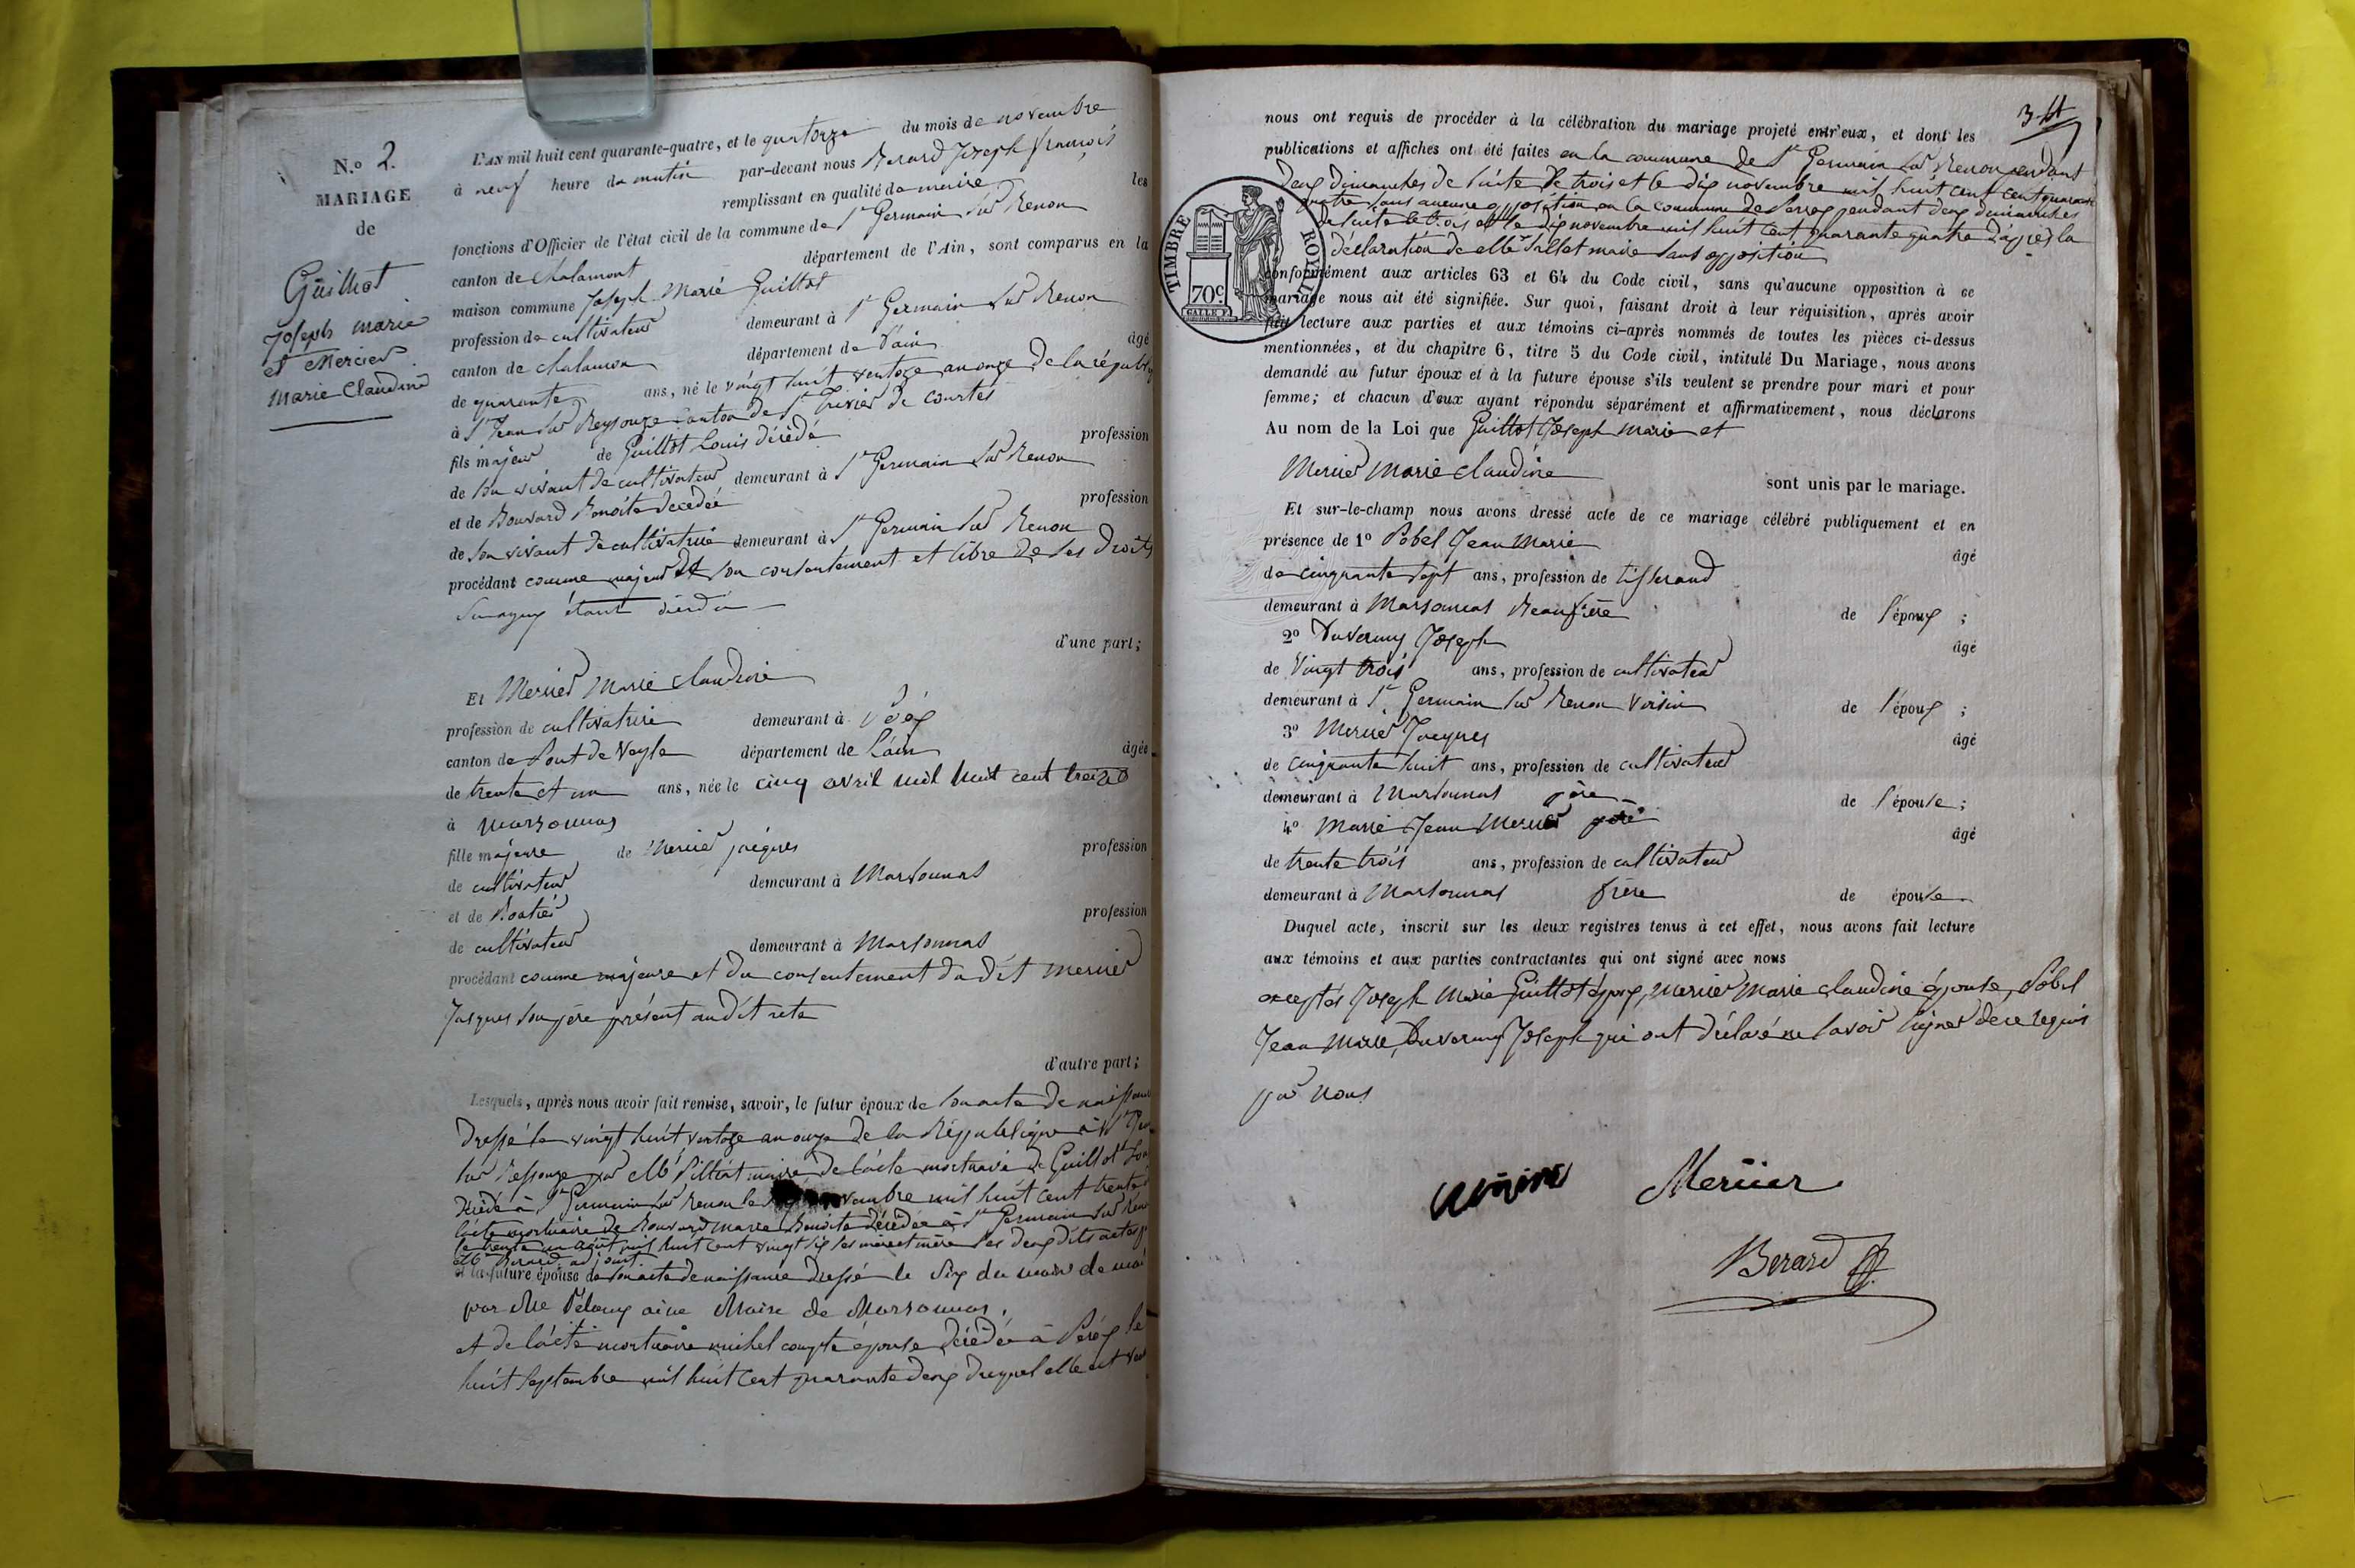 N.o 2.
MARIAGE
de
Guillot
Joseph marie
et Mercier
Marie Claudine
L'AN mil huit cent quarante-quatre, et le quatorze du mois de novembre
à neuf heure du matin par-devant nous Berard Joseph François
remplissant en qualité de maire les
fonctions d'Officier de l'état civil de la commune de St Germain sur Renon
canton de Chalamont département de l'Ain, sont comparus en la
maison commune Joseph Marie Guillot
profession de cultivateur demeurant à St Germain sur Renon
canton de chalamon département de l'ain âgé
de quarante ans, né le vingt huit ventoze an onze de la républ
à St Jean sur Reyssouze canton de St Trivier de courtes
fils majeur de Guillot Louis décédé profession
de son vivant de cultivateur demeurant à St Germain sur Renon
et de Bouvard Benoite decedée profession
de son vivant de cultivatrice demeurant à St Germain sur Renon
procédant comme majeur de son consentement et libre de ses droits
étant décédé
d'une part;
Et Mercier Marie Claudine
profession de cultivatrice demeurant à
canton de Pont de Veyle département de l'ain âgée
de trente et un ans, née le cinq avril mil huit cent treize
à Marsonnas
fille majeure de Mercier jacques profession
de cultivateur demeurant à Marsonnas
et de profession
de cultivateur demeurant à Marsonnas
procédant comme majeure et du consentement du dit Mercier
Jacques son père présent audit acte
d'autre part;
Lesquels, après nous avoir fait remise, savoir, le futur époux de son acte de naissance
Dressé le vingt huit ventoze an onze de la République à St
sur Ressouze par Mr maire de l'acte mortuaire de Guillot
décédé à St Germain sur Renon le vembre mil huit cent trente
l'acte mortuaire de Bouvard marie Benoite décédée à St Germain sur Ren
le trente un août mil huit cent vingt six les deux dits actes
Mr Berard adjoint
et la future épouse de son acte de naissance dressé le six du mois de
par Me ainé Maire de Marsonnas,
et de l'acte mortuaire michel époux décédé à le
huit septembre mil huit cent quarante deux duquel elle est
34
nous ont requis de procéder à la célébration du mariage projeté entr'eux, et dont les
publications et affiches ont été faites en la commune de St Germain sur Renon pendant
deux dimanches de suite le trois et le dix novembre mil huit cent cent quarante
quatre sans aucune opposition en la commune de pendant deux dimanches
de suite le trois et le dix novembre mil huit cent quarante quatre d'après la
déclaration de Mr maire sans opposition
TIMBRE ROYAL
70c.
conformément aux articles 63 et 64 du Code civil, sans qu'aucune opposition à ce
mariage nous ait été signifiée. Sur quoi, faisant droit à leur réquisition, après avoir
fait lecture aux parties et aux témoins ci-après nommés de toutes les pièces ci-dessus
mentionnées, et du chapitre 6, titre 5 du Code civil, intitulé Du Mariage, nous avons
demandé au futur époux et à la future épouse s'ils veulent se prendre pour mari et pour
femme; et chacun d'eux ayant répondu séparément et affirmativement, nous déclarons
Au nom de la Loi que Guillot Joseph Marie et
Mercier Marie Claudine
sont unis par le mariage.
Et sur-le-champ nous avons dressé acte de ce mariage célébré publiquement et en
présence de 1o Pobel Jean Marie âgé
de cinquante sept ans, profession de tisserand
demeurant à Marsonnas Beaufrère de l'époux ;
2o Duverny Joseph âgé
de Vingt trois ans, profession de cultivateur
demeurant à St Germain sur Renon Voisin de l'époux ;
3o Mercier Jacques âgé
de cinquante huit ans, profession de cultivateur
demeurant à Marsonnas père de l'épouse ;
4o Marie Jean Mercier âgé
de trente trois ans, profession de cultivateur
demeurant à Marsonnas frère de épouse
Duquel acte, inscrit sur les deux registres tenus à cet effet, nous avons fait lecture
aux témoins et aux parties contractantes qui ont signé avec nous
exceptés Joseph Marie Guillot époux, Mercier Marie Claudine épouse, Pobel
Jean Marie, Duverny Joseph qui ont déclaré ne savoir signer de ce requis
par nous
Mercier
Berard